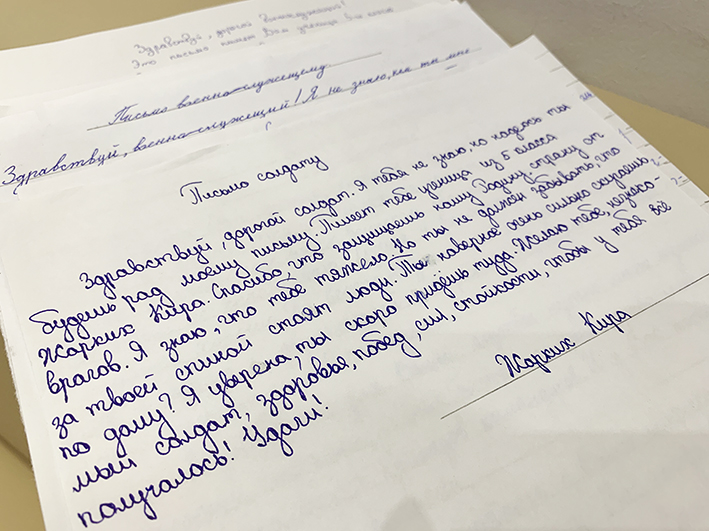 Здравствуй, дорогой военнослужащий!
Это письмо пишет Вам ученица
Письмо военно-служещему.
Здравствуй, военно-служещий! Я не знаю, как ты мне
Письмо солдату
Здравствуй, дорогой солдат. Я тебя не знаю, но надеюсь ты
будешь рад моему письму. Пишет тебе ученица из 5 класса
Жарких Кира. Спасибо, что защищаешь нашу Родину, страну от
врагов. Я знаю, что тебе тяжело. Но ты не должен забывать, что
за твоей спиной стоят люди. Ты наверное очень сильно скучаешь
по дому? Я уверена, ты скоро придёшь туда. Желаю тебе, незнако-
мый солдат, здоровья, побед, сил, стойкости, чтобы у тебя всё
получалось! Удачи!
Жарких Кира